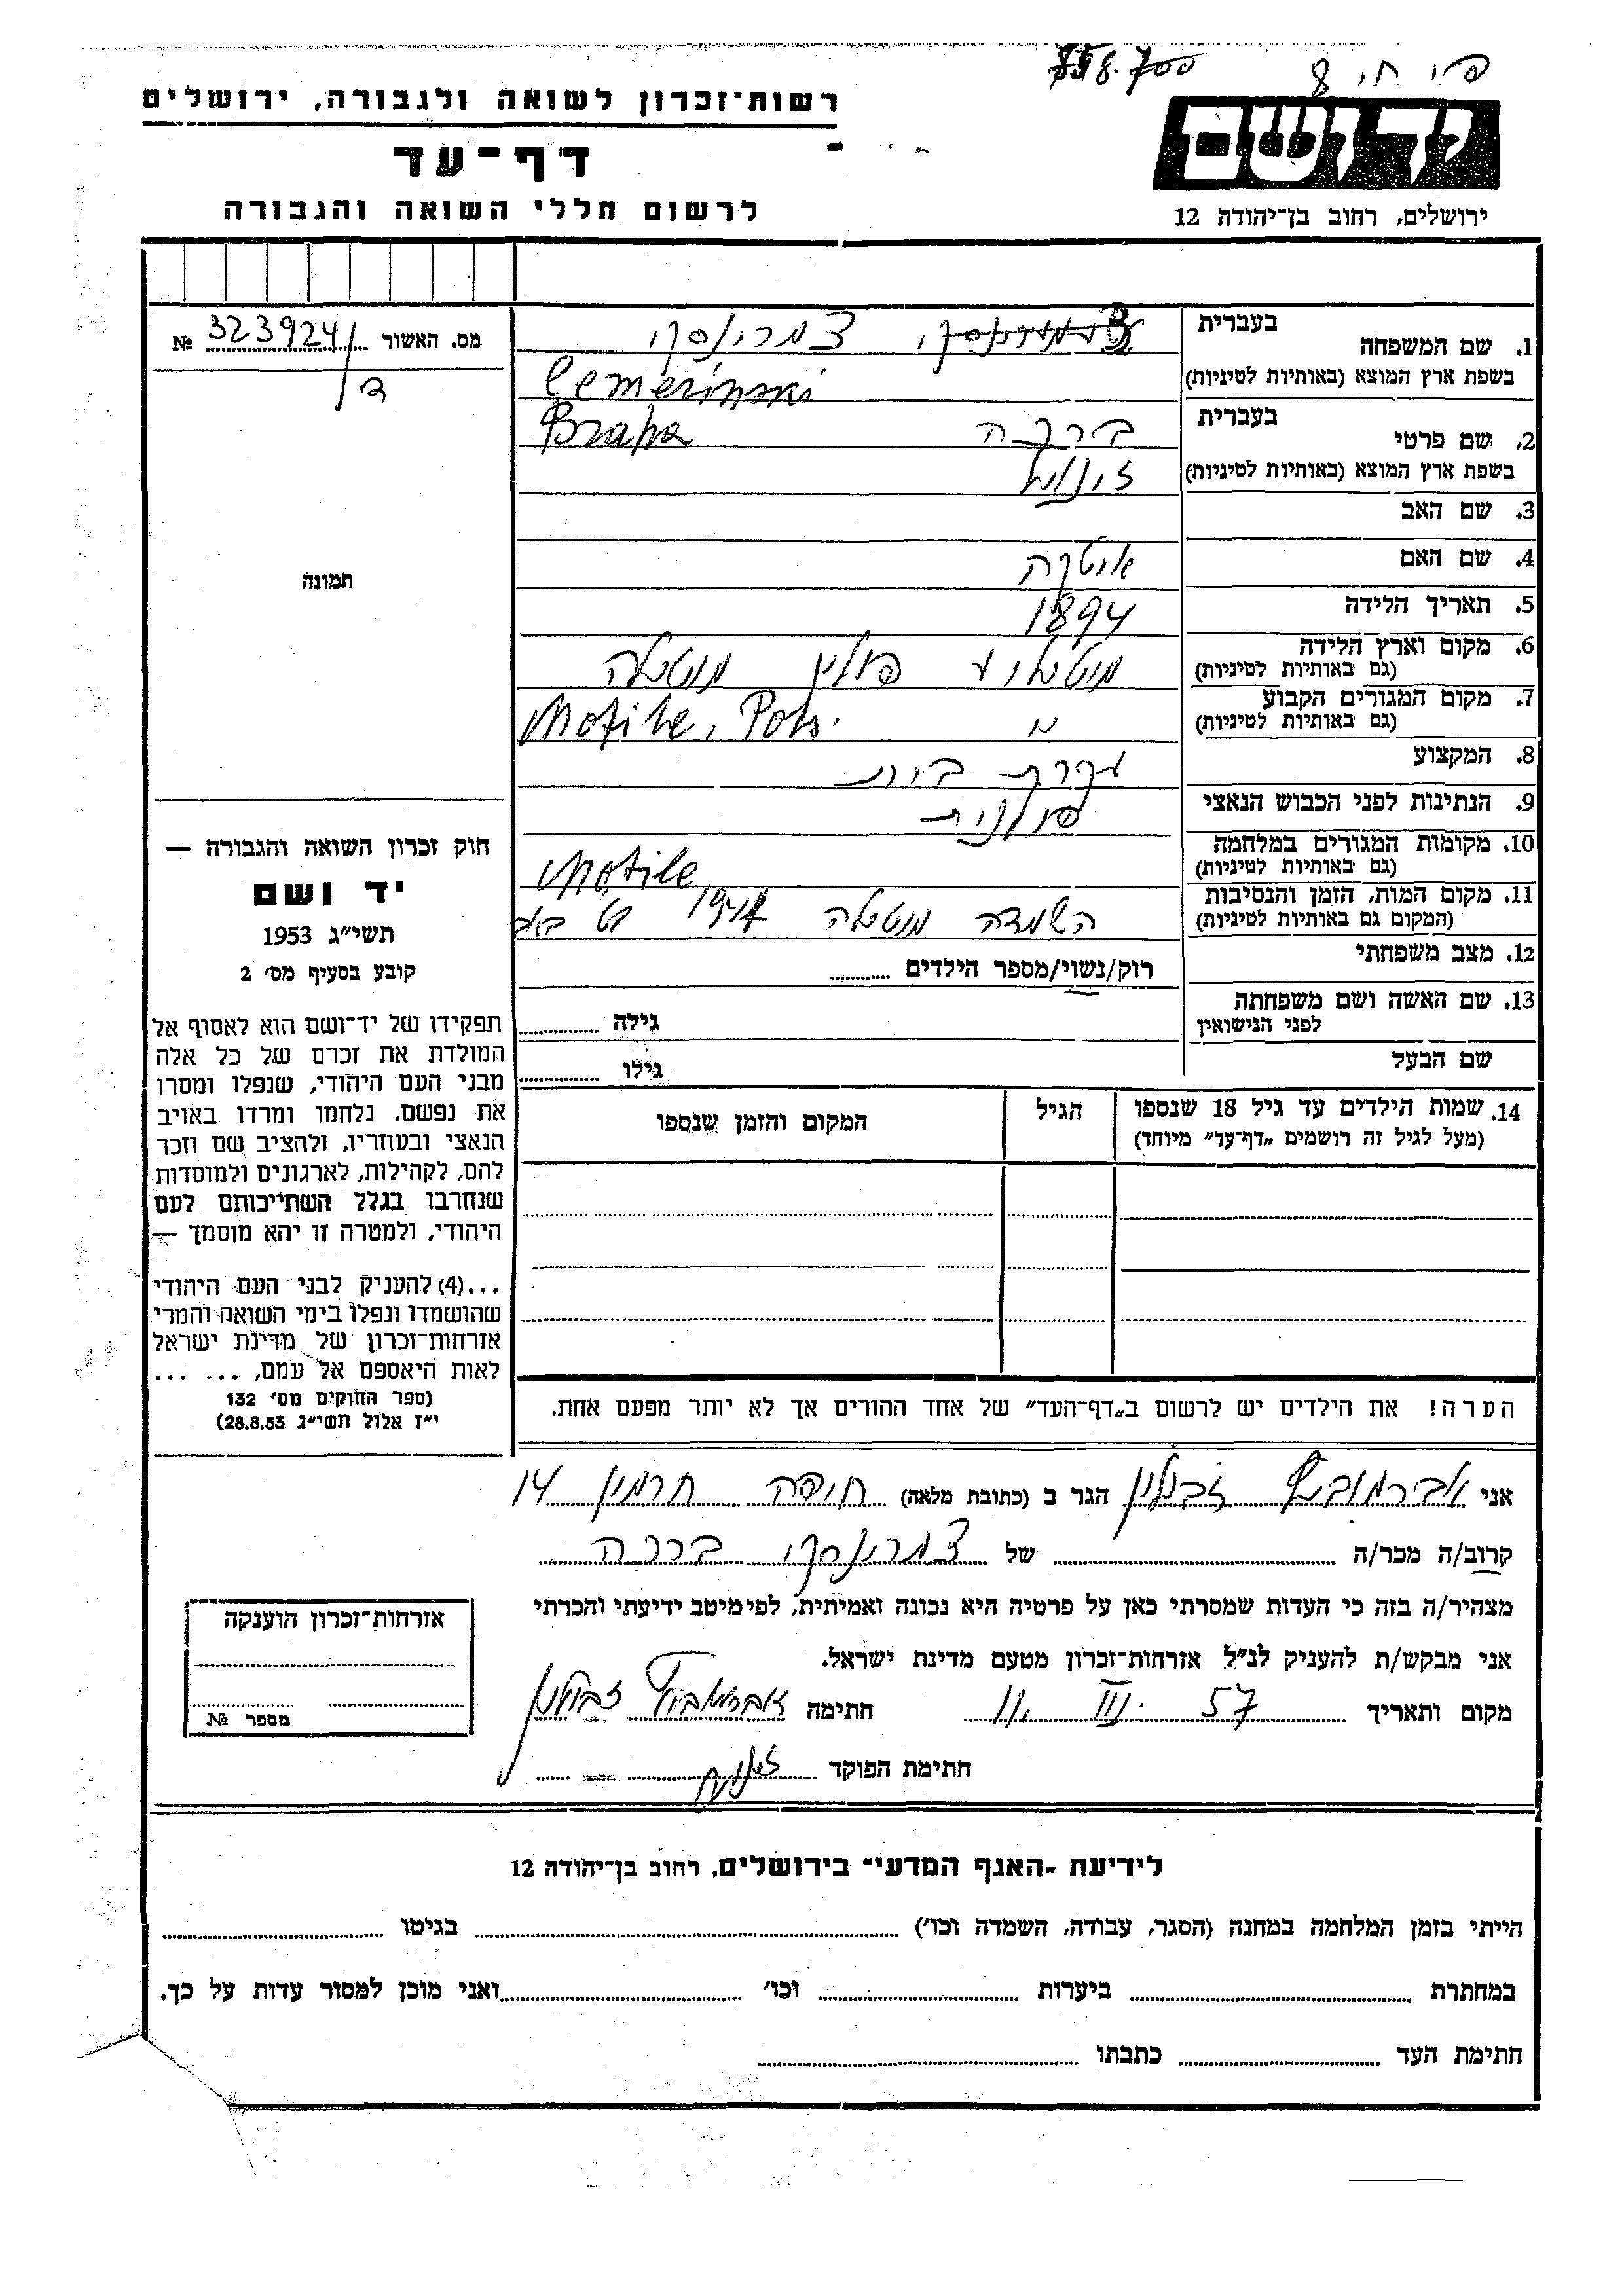 פי חי 8
758.700
יד ושם
ירושלים, רחוב בן־יהודה 12
רשות־זכרון לשואה ולגבורה, ירושלים
דף־עד
לרשום חללי השואה והגבורה
מס. האשור 323924 №
ד/
תמונה
1. שם המשפחה בעברית צמרינסקי
בשפת ארץ המוצא (באותיות לטיניות) Cemerinski
2. שם פרטי בעברית ברכה Braha
בשפת ארץ המוצא (באותיות לטיניות)
3. שם האב
4. שם האם איטקה
5. תאריך הלידה 1894
6. מקום וארץ הלידה פולין מוטילה
(גם באותיות לטיניות)
7. מקום המגורים הקבוע Motile, Pols.
(גם באותיות לטיניות)
8. המקצוע עקרת בית
9. הנתינות לפני הכבוש הנאצי פולנית
10. מקומות המגורים במלחמה Motile
(גם באותיות לטיניות)
11. מקום המות, הזמן והנסיבות השמדה מוטילה 1941 ט באב
(המקום גם באותיות לטיניות)
12. מצב משפחתי רוק/נשוי/מספר הילדים
13. שם האשה ושם משפחתה גילה
לפני הנישואין
שם הבעל גילו
14. שמות הילדים עד גיל 18 שנספו הגיל המקום והזמן שנספו
(מעל לגיל זה רושמים „דף־עד” מיוחד)
הערה! את הילדים יש לרשום ב„דף־העד” של אחד ההורים אך לא יותר מפעם אחת.
חוק זכרון השואה והגבורה —
יד ושם
תשי״ג 1953
קובע בסעיף מס׳ 2
תפקידו של יד־ושם הוא לאסוף אל
המולדת את זכרם של כל אלה
מבני העם היהודי, שנפלו ומסרו
את נפשם. נלחמו ומרדו באויב
הנאצי ובעוזריו, ולהציב שם וזכר
להם, לקהילות, לארגונים ולמוסדות
שנחרבו בגלל השתייכותם לעם
היהודי, ולמטרה זו יהא מוסמך —
...(4) להעניק לבני העם היהודי
שהושמדו ונפלו בימי השואה והמרי
אזרחות־זכרון של מדינת ישראל
לאות היאספם אל עמם, ... ...
(ספר החוקים מס׳ 132
י״ז אלול תשי״ג 28.8.53)
אני אברמוביץ זבולון הגר ב (כתובת מלאה) חיפה חרמון 14
קרוב/ה מכר/ה של צמרינסקי ברכה
מצהיר/ה בזה כי העדות שמסרתי כאן על פרטיה היא נכונה ואמיתית, לפי מיטב ידיעתי והכרתי
אני מבקש/ת להעניק לנ״ל אזרחות־זכרון מטעם מדינת ישראל.
מקום ותאריך 11. III. 57 חתימה אברמוביץ זבולון
חתימת הפוקד
אזרחות־זכרון הוענקה
מספר №
לידיעת ־האגף המדעי־ בירושלים, רחוב בן־יהודה 12
הייתי בזמן המלחמה במחנה (הסגר, עבודה, השמדה וכו׳) בגיטו
במחתרת ביערות וכו׳ ואני מוכן למסור עדות על כך.
חתימת העד כתבתו